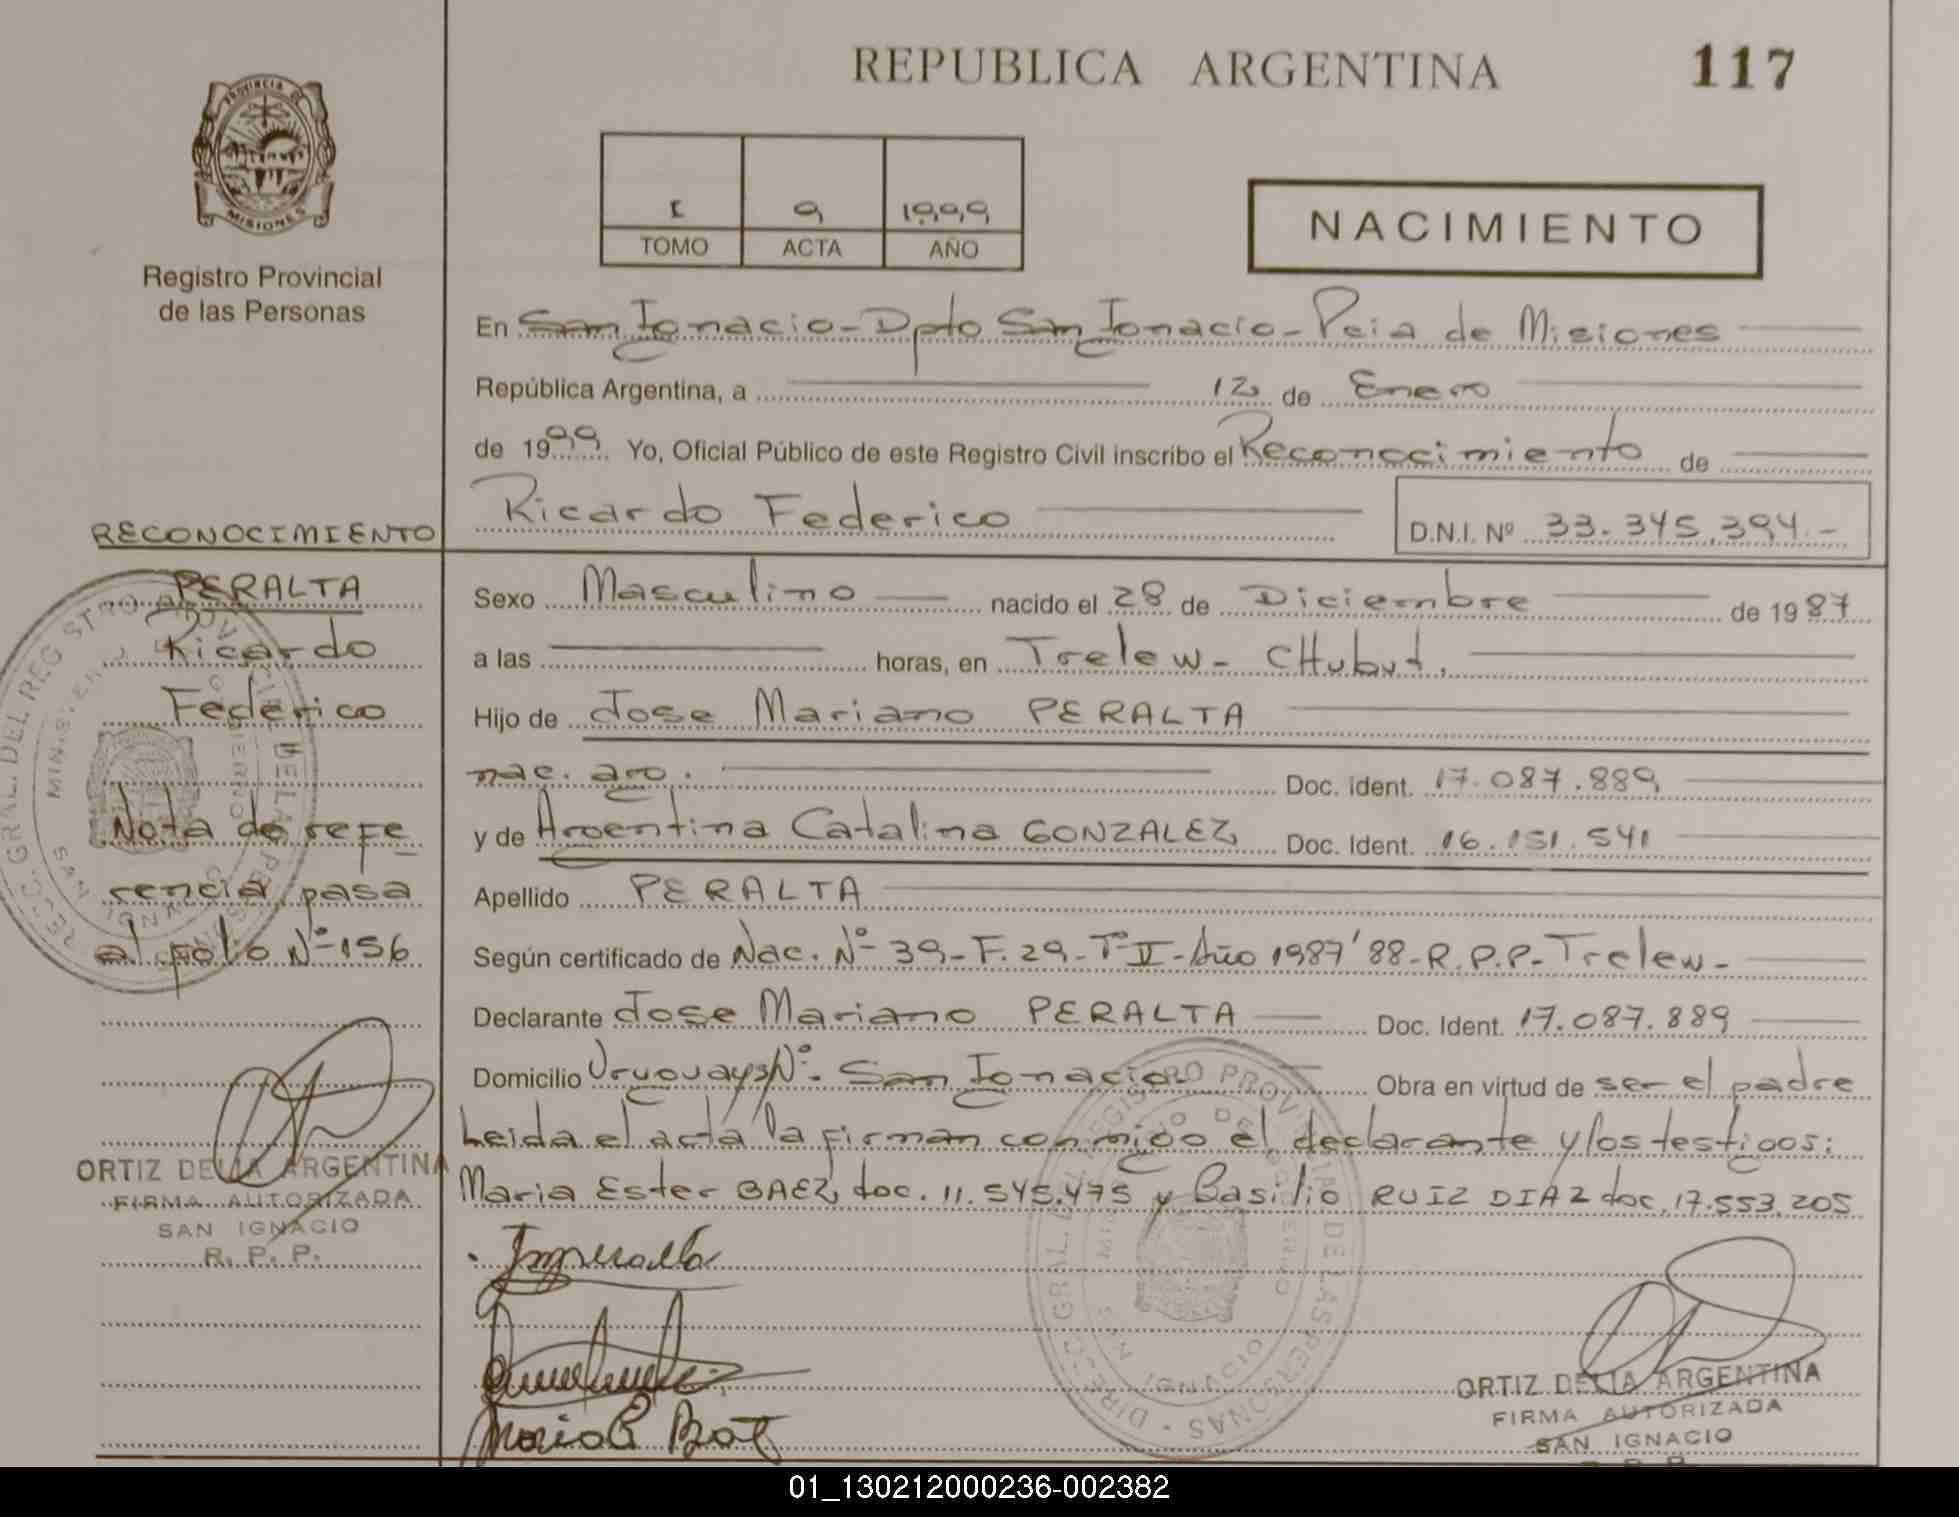 REPUBLICA ARGENTINA
117
PROVINCIA DE
MISIONES
Registro Provincial
de las Personas
I 9 1999
TOMO ACTA AÑO
NACIMIENTO
En San Ignacio - Dpto San Ignacio - Pcia de Misiones
República Argentina, a 12 de Enero
de 1999 Yo, Oficial Público de este Registro Civil inscribo el Reconocimiento de
Ricardo Federico
D.N.I. Nº 33.345.394.-
RECONOCIMIENTO
PERALTA
Ricardo
Federico
Nota de refe
rencia pasa
al folio Nº 156
ORTIZ DELIA ARGENTINA
FIRMA AUTORIZADA
SAN IGNACIO
R. P. P.
Sexo Masculino nacido el 28 de Diciembre de 1987
a las horas, en Trelew - CHubut.
Hijo de Jose Mariano PERALTA
nac. arg. Doc. Ident. 17.087.889
y de Argentina Catalina GONZALEZ Doc. Ident. 16.151.541
Apellido PERALTA
Según certificado de Nac. Nº 39 - F. 29 - Tº II - Año 1987'88 - R.P.P. - Trelew -
Declarante Jose Mariano PERALTA Doc. Ident. 17.087.889
Domicilio Uruguay s/Nº - San Ignacio Obra en virtud de ser el padre
Leida el acta la firman conmigo el declarante y los testigos:
Maria Ester BAEZ doc. 11.545.475 y Basilio RUIZ DIAZ doc. 17.553.205
ORTIZ DELIA ARGENTINA
FIRMA AUTORIZADA
SAN IGNACIO
DIRECC. GRAL. DEL REGISTRO PROVINCIAL DE LAS PERSONAS
MINISTERIO DE GOBIERNO
SAN IGNACIO
01_130212000236-002382